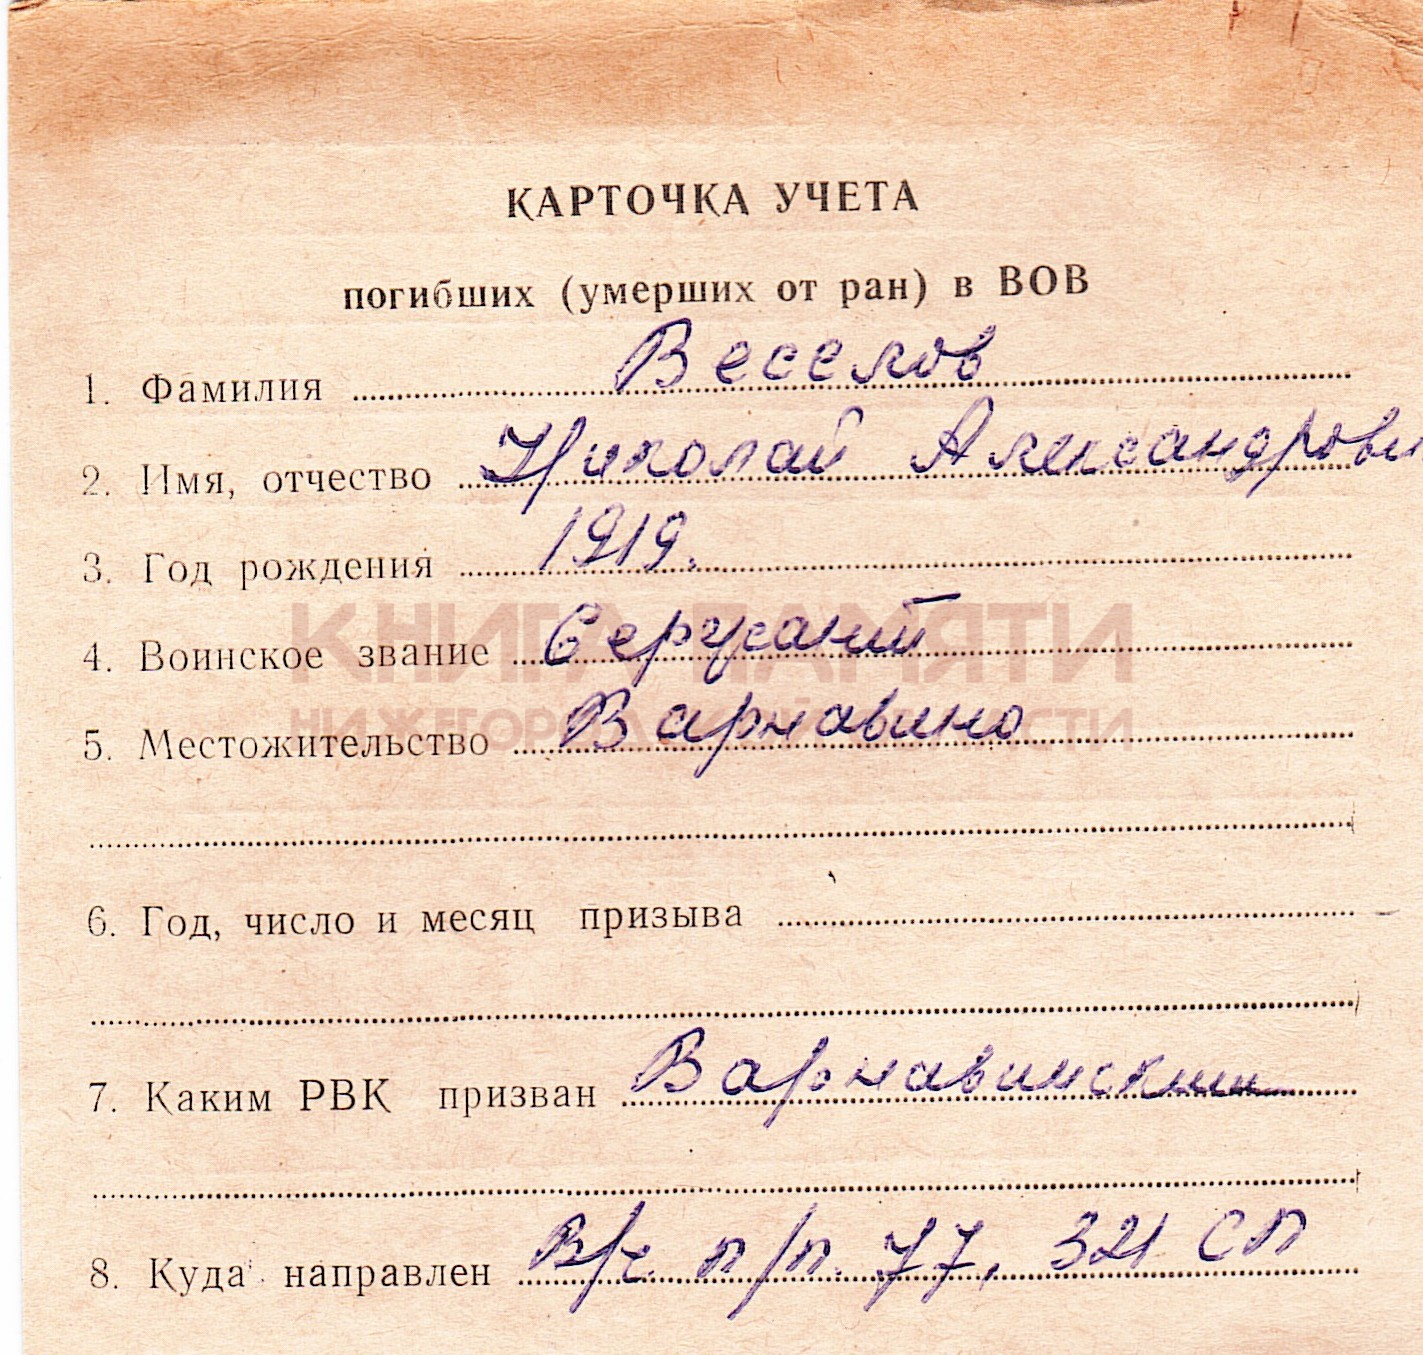 КАРТОЧКА УЧЕТА
погибших (умерших от ран) в ВОВ
1. Фамилия Веселов
2. Имя, отчество Николай Александрови
3. Год рождения 1919.
4. Воинское звание Сержант
КНИГА ПАМЯТИ
5. Местожительство Варнавино
НИЖЕГОРОДСКОЙ ОБЛАСТИ
6. Год, число и месяц призыва
7. Каким РВК призван Варнавинским
8. Куда направлен В/ч. п/п. 77, 321 СП